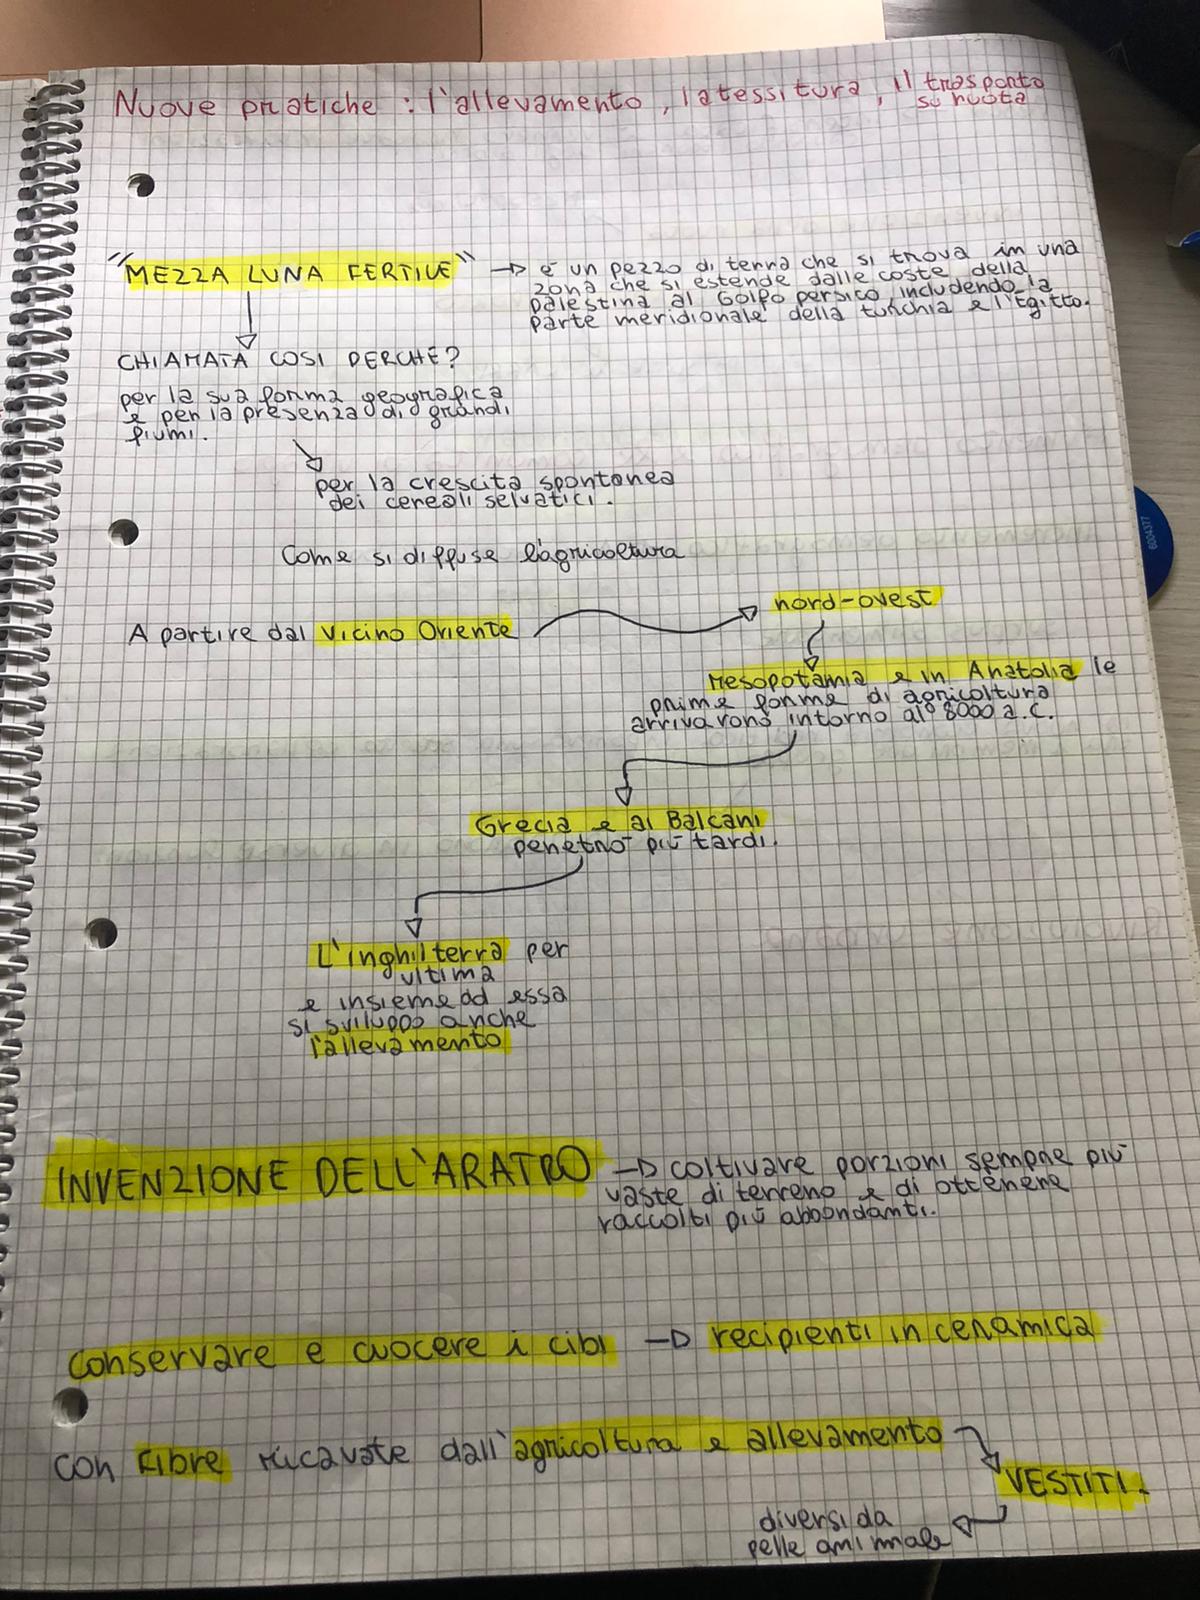 Nuove pratiche : l'allevamento, la tessitura, il trasporto
su ruota
"MEZZA LUNA FERTILE" → è un pezzo di terra che si trova in una
zona che si estende dalle coste della
palestina al Golfo persico, includendo la
parte meridionale della turchia e l'Egitto.
CHIAMATA COSI PERCHÉ?
per la sua forma geografica
e per la presenza di grandi
fiumi.
per la crescita spontanea
dei cereali selvatici.
Come si diffuse l'agricoltura
A partire dal Vicino Oriente
nord-ovest
Mesopotamia e in Anatolia le
prime forme di agricoltura
arrivarono intorno al 8000 a.C.
Grecia e ai Balcani
penetrò più tardi.
L'inghilterra per
ultima
e insieme ad essa
si sviluppò anche
l'allevamento
INVENZIONE DELL'ARATRO → coltivare porzioni sempre più
vaste di terreno e di ottenere
raccolti più abbondanti.
conservare e cuocere i cibi → recipienti in ceramica
con fibre ricavate dall'agricoltura e allevamento
VESTITI.
diversi da
pelle animale
6004377